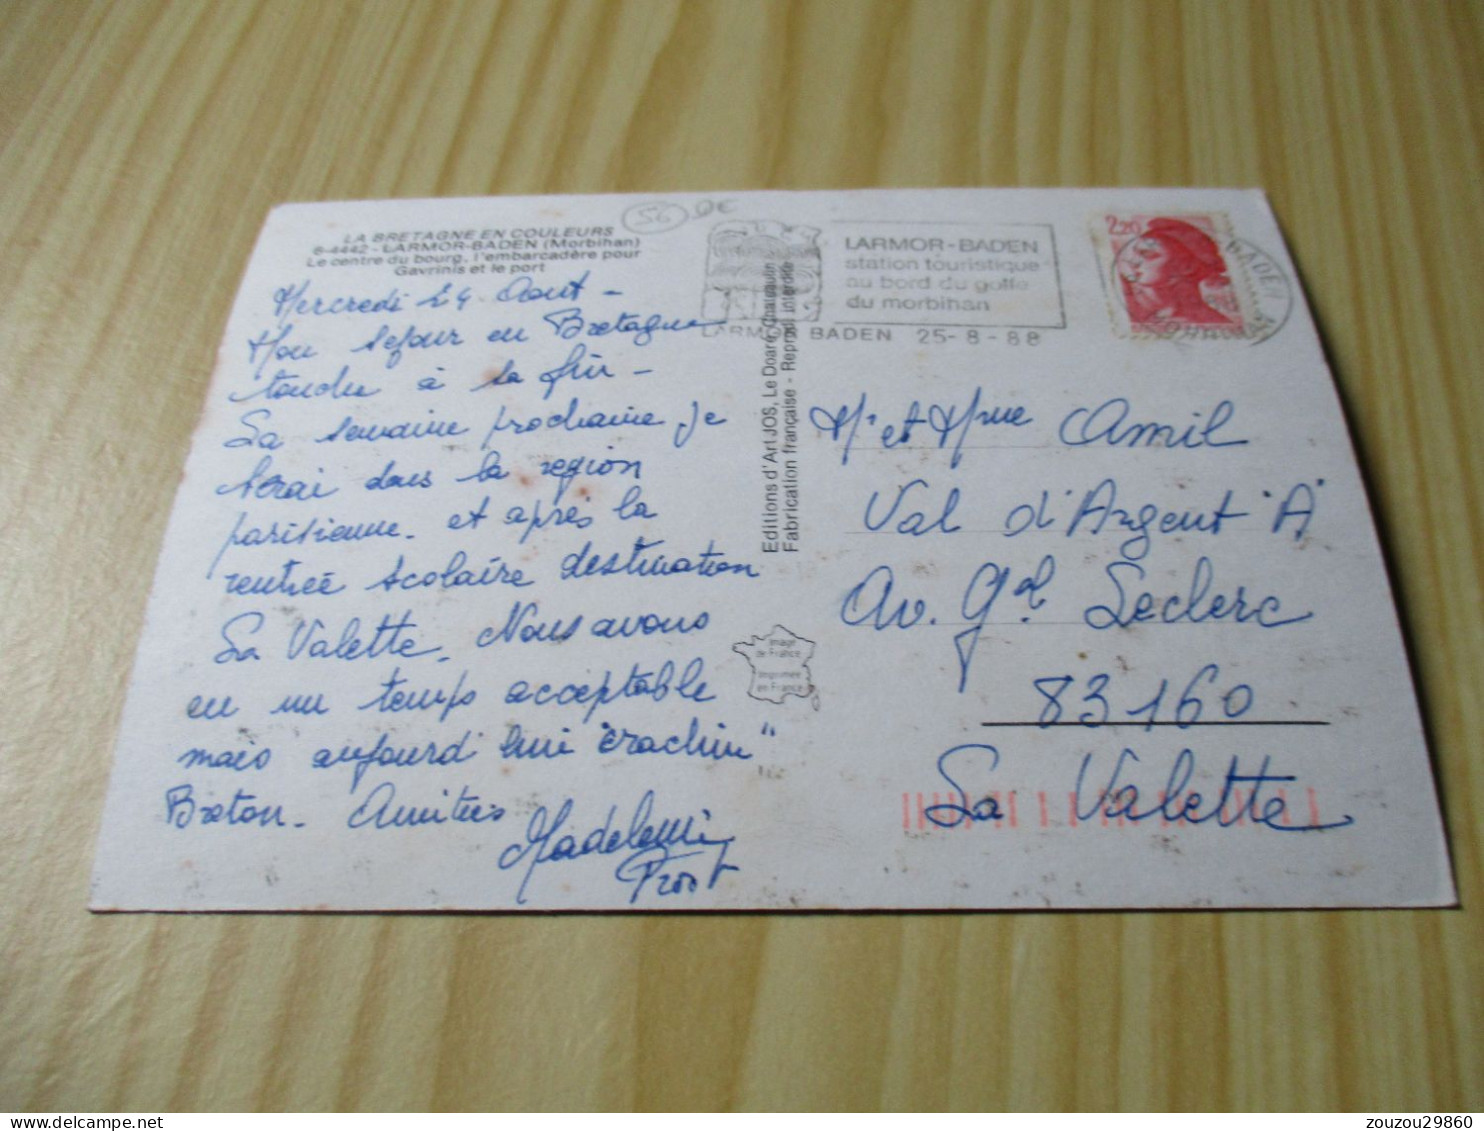 56
LA BRETAGNE EN COULEURS
6-4442 - LARMOR-BADEN (Morbihan)
Le centre du bourg, l'embarcadère pour
Gavrinis et le port
Mercredi 24 Aout -
Mon sejour en Bretagne
touche à sa fin -
La semaine prochaine je
serai dans la region
parisienne. et après la
rentrée scolaire destination
La Valette. Nous avons
eu un temps acceptable
mais aujourd'hui "crachin"
Breton. Amitiés
Madeleine
Editions d'Art JOS, Le Doaré, Châteaulin
Fabrication française - Reprod. interdite
Image
de France
Imprimée
en France
LARMOR-BADEN
station touristique
au bord du golfe
du morbihan
LARMOR BADEN 25-8-88
2,20
BADEN
MORBIHAN
Mr et Mme Amil
Val d'Argent "A"
Av. Gal Leclerc
83160
La Valette
zouzou29860